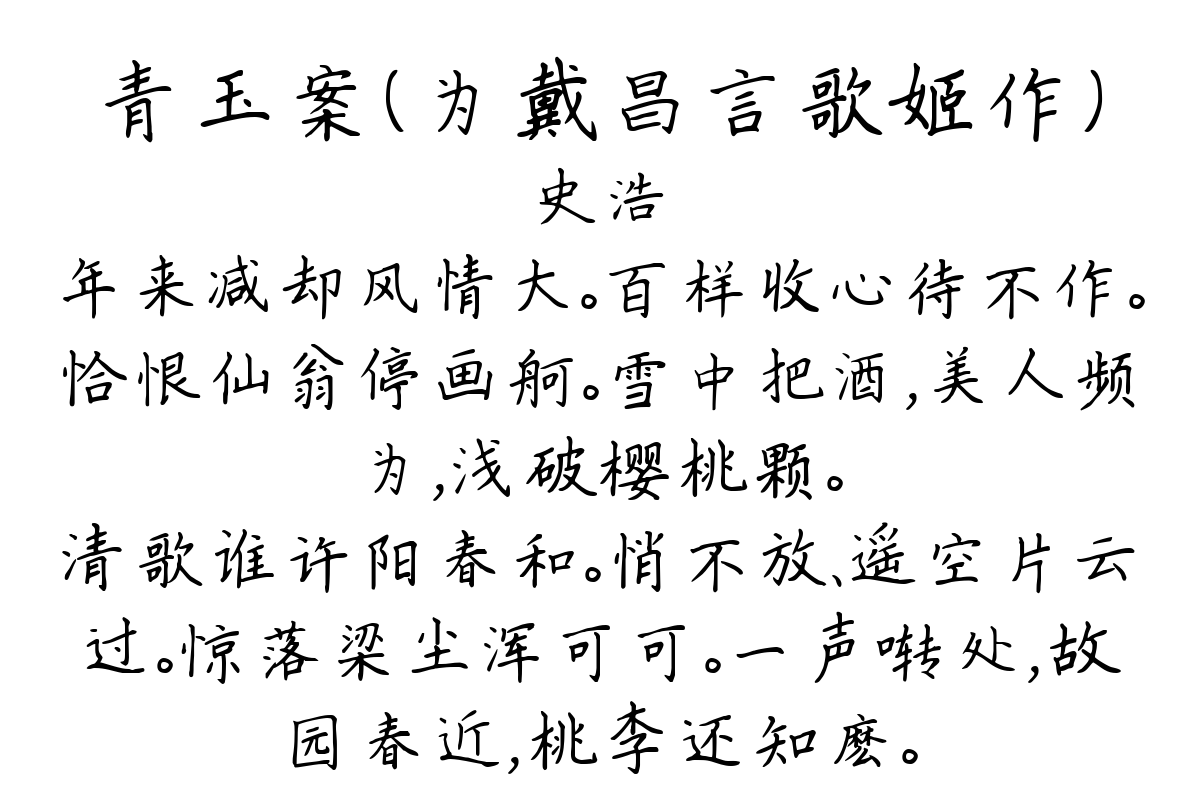 青玉案(为戴昌言歌姬作)
史浩
年来减却风情大。百样收心待不作。
恰恨仙翁停画舸。雪中把酒,美人频
为,浅破樱桃颗。
清歌谁许阳春和。悄不放、遥空片云
过。惊落梁尘浑可可。一声啭处,故
园春近,桃李还知麽。